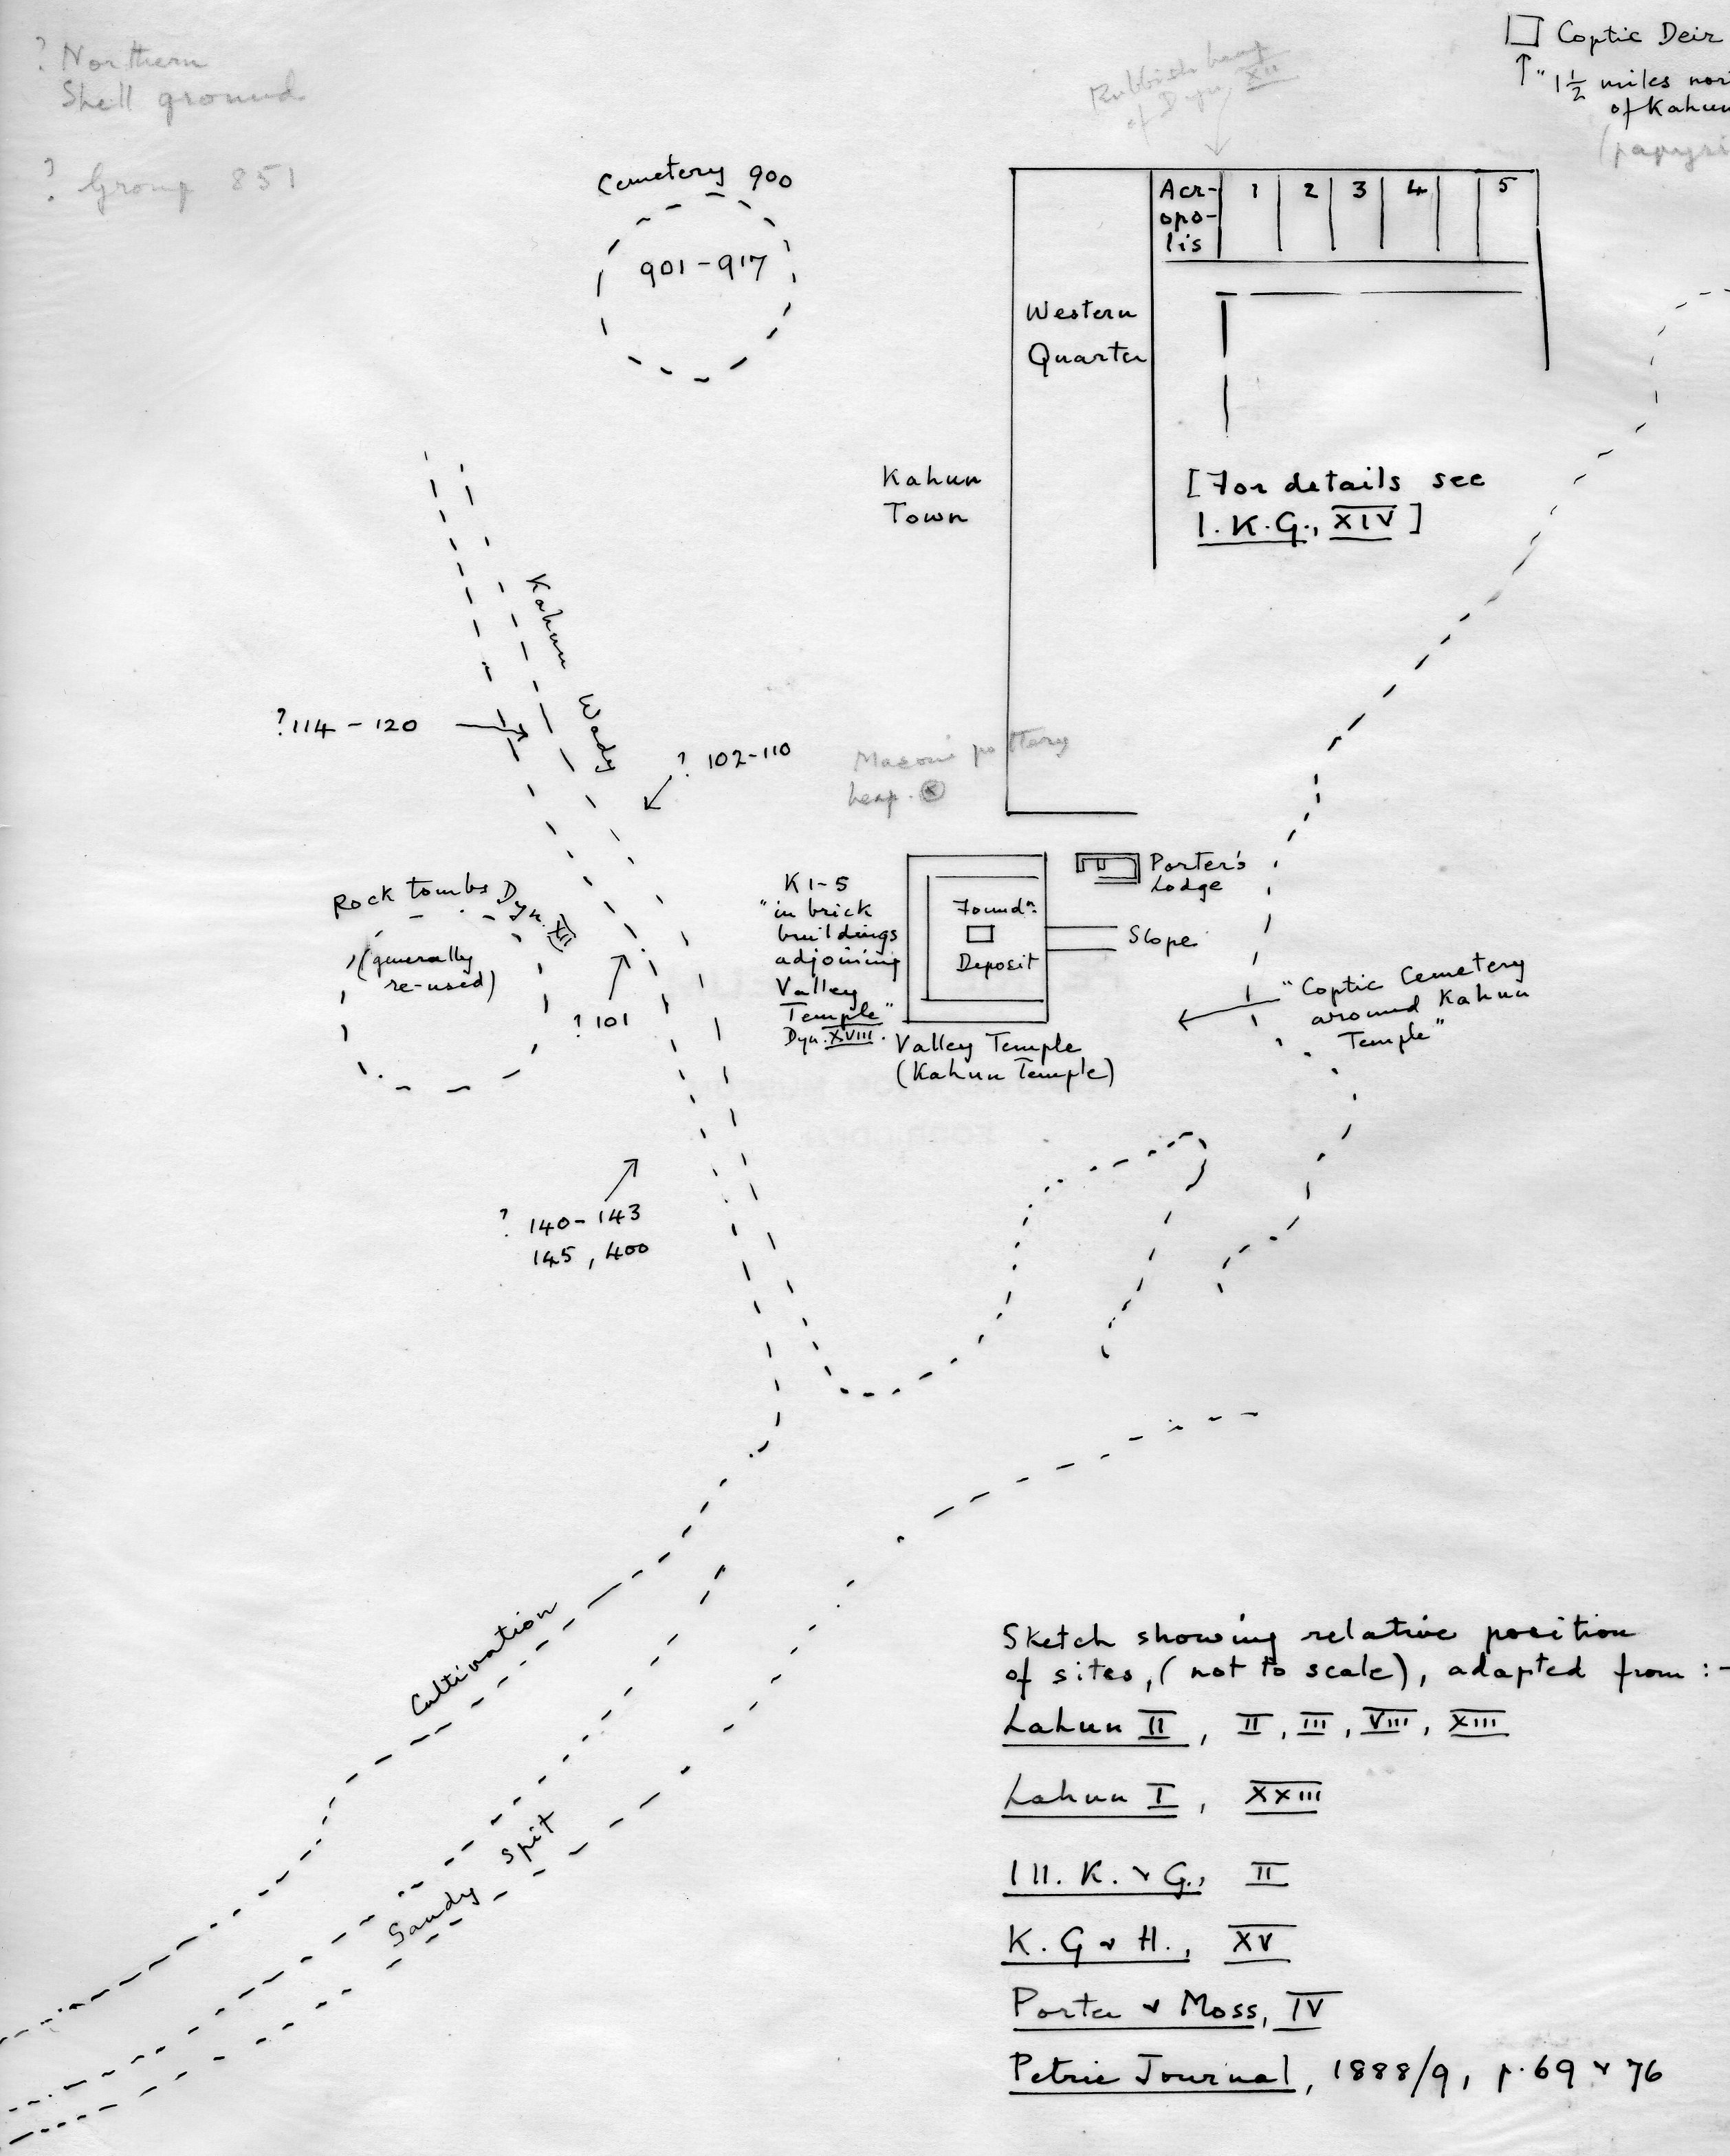 ? Northern
Shell ground
? Group 851
Cemetery 900
901-917
Rubbish heap
of Dyn. XII
Coptic Deir
" 1½ miles
of Kahun
(papyri
Acr-
opo-
lis
1 2 3 4 5
Western
Quarter
Kahun
Town
[For details see
I.K.G., XIV]
Kahun Wady
?114 - 120
? 102-110
Mason's pottery
heap. ⊗
Rock tombs Dyn. XII
(generally
re-used)
? 101
K1-5
"in brick
buildings
adjoining
Valley
Temple"
Dyn. XVIII.
Foundn.
Deposit
Porter's
Lodge
Slope
Valley Temple
(Kahun Temple)
"Coptic Cemetery
around Kahun
Temple"
? 140-143
145, 400
Cultivation
Sandy Spit
Sketch showing relative position
of sites, (not to scale), adapted from :-
Lahun II, II, III, VIII, XIII
Lahun I, XXIII
Ill. K. & G., II
K. G & H., XV
Porter & Moss, IV
Petrie Journal, 1888/9, p. 69 & 76